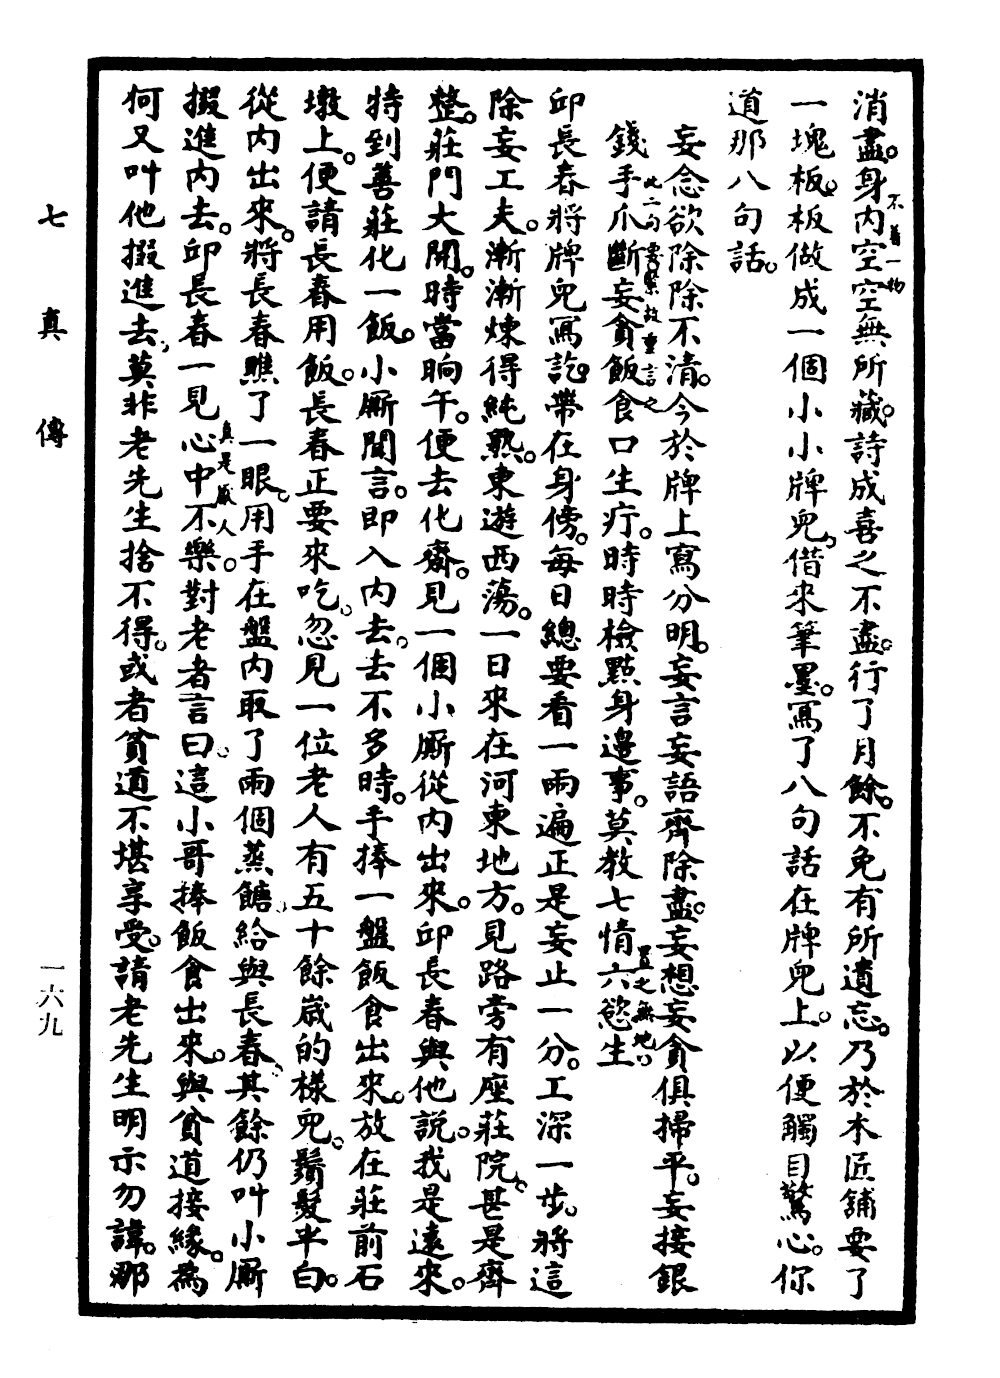 消盡。身內空空無所藏。詩成喜之不盡。行了月餘。不免有所遺忘。乃於木匠舖要了
不着一物
一塊板。板做成一個小小牌兒。借來筆墨。寫了八句話在牌兒上。以便觸目驚心。你
道那八句話。
妄念欲除除不清。今於牌上寫分明。妄言妄語齊除盡。妄想妄貪俱掃平。妄接銀
錢手爪斷。妄貪飯食口生疔。時時檢點身邊事。莫教七情六慾生
此二句要緊故重言之
置之無地。
邱長春將牌兒寫訖。帶在身傍。每日總要看一兩遍。正是妄止一分。工深一步。將這
除妄工夫。漸漸煉得純熟。東遊西蕩。一日來在河東地方。見路旁有座莊院。甚是齊
整。莊門大開。時當晌午。便去化齋。見一個小廝從內出來。邱長春與他說。我是遠來。
特到善莊化一飯。小廝聞言。即入內去。去不多時。手捧一盤飯食出來。放在莊前石
墩上。便請長春用飯。長春正要來吃。忽見一位老人有五十餘歲的樣兒。鬚髮半白。
從內出來。將長春瞧了一眼。用手在盤內取了兩個蒸饝。給與長春。其餘仍叫小廝
掇進內去。邱長春一見心中不樂。對老者言曰。這小哥捧飯食出來。與貧道接緣。爲
真是感人。
何又叫他掇進去。莫非老先生捨不得。或者貧道不堪享受。請老先生明示勿諱。那
七真傳
一六九